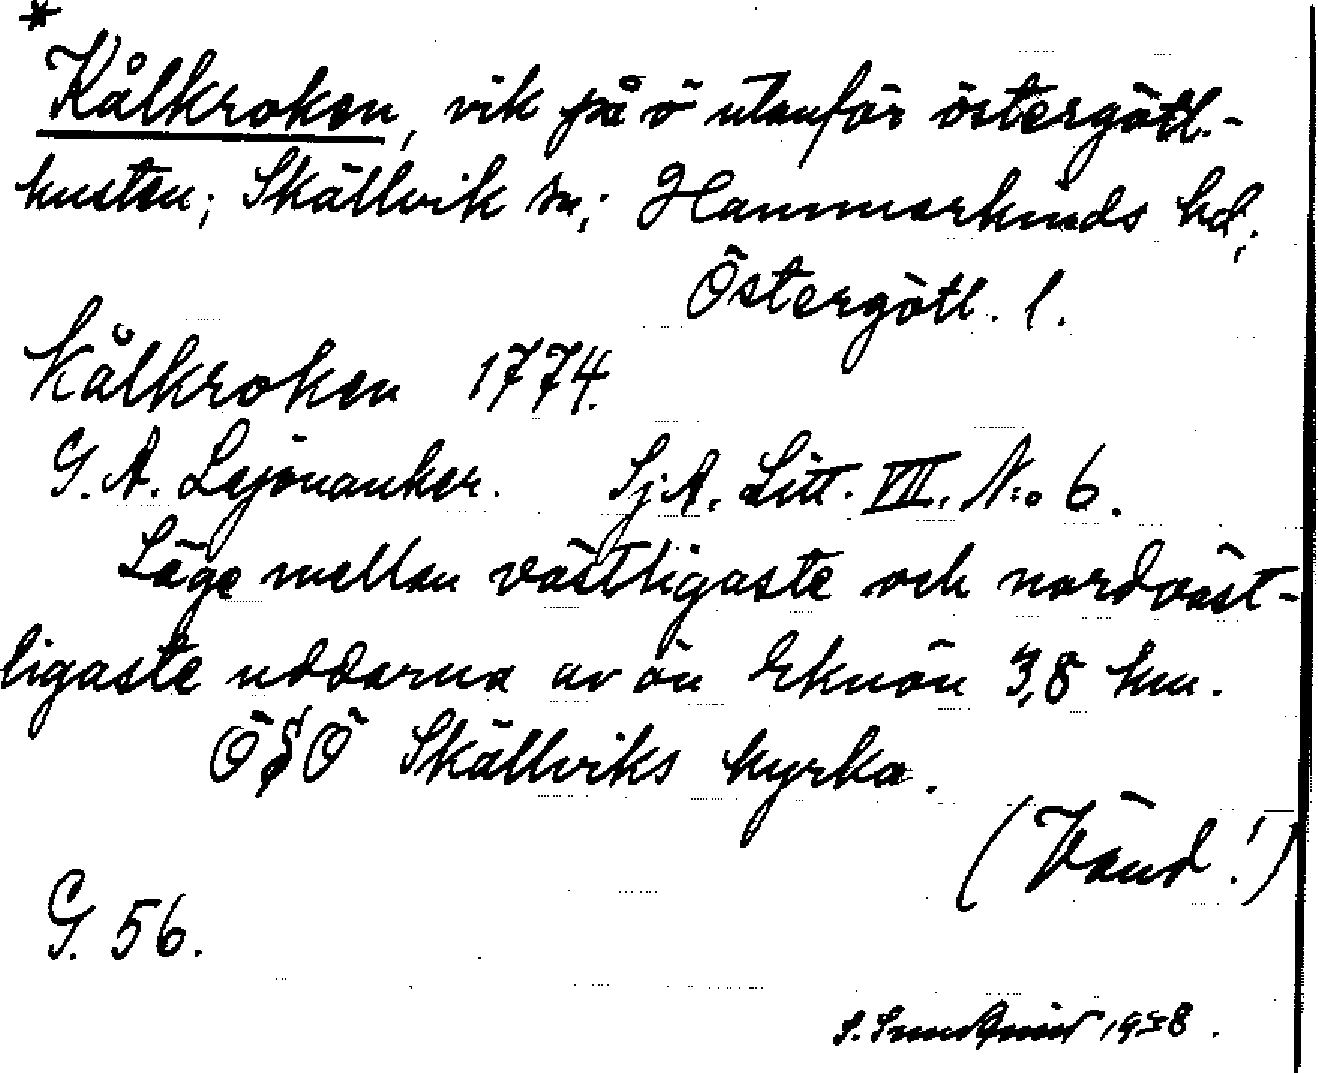 *
Kålkroken, vik på ö utanför östergötl.-
kusten; Skällvik sn; Hammarkinds hd;
Östergötl. l.
Kålkroken 1774.
G. A. Lejonanker. SjA. Litt. VII. N:o 6.
Läge mellan västligaste och nordväst-
ligaste uddarna av ön Eknön 3,8 km.
ÖSÖ Skällviks kyrka.
(Vänd!)
G. 56.
S. 1938.